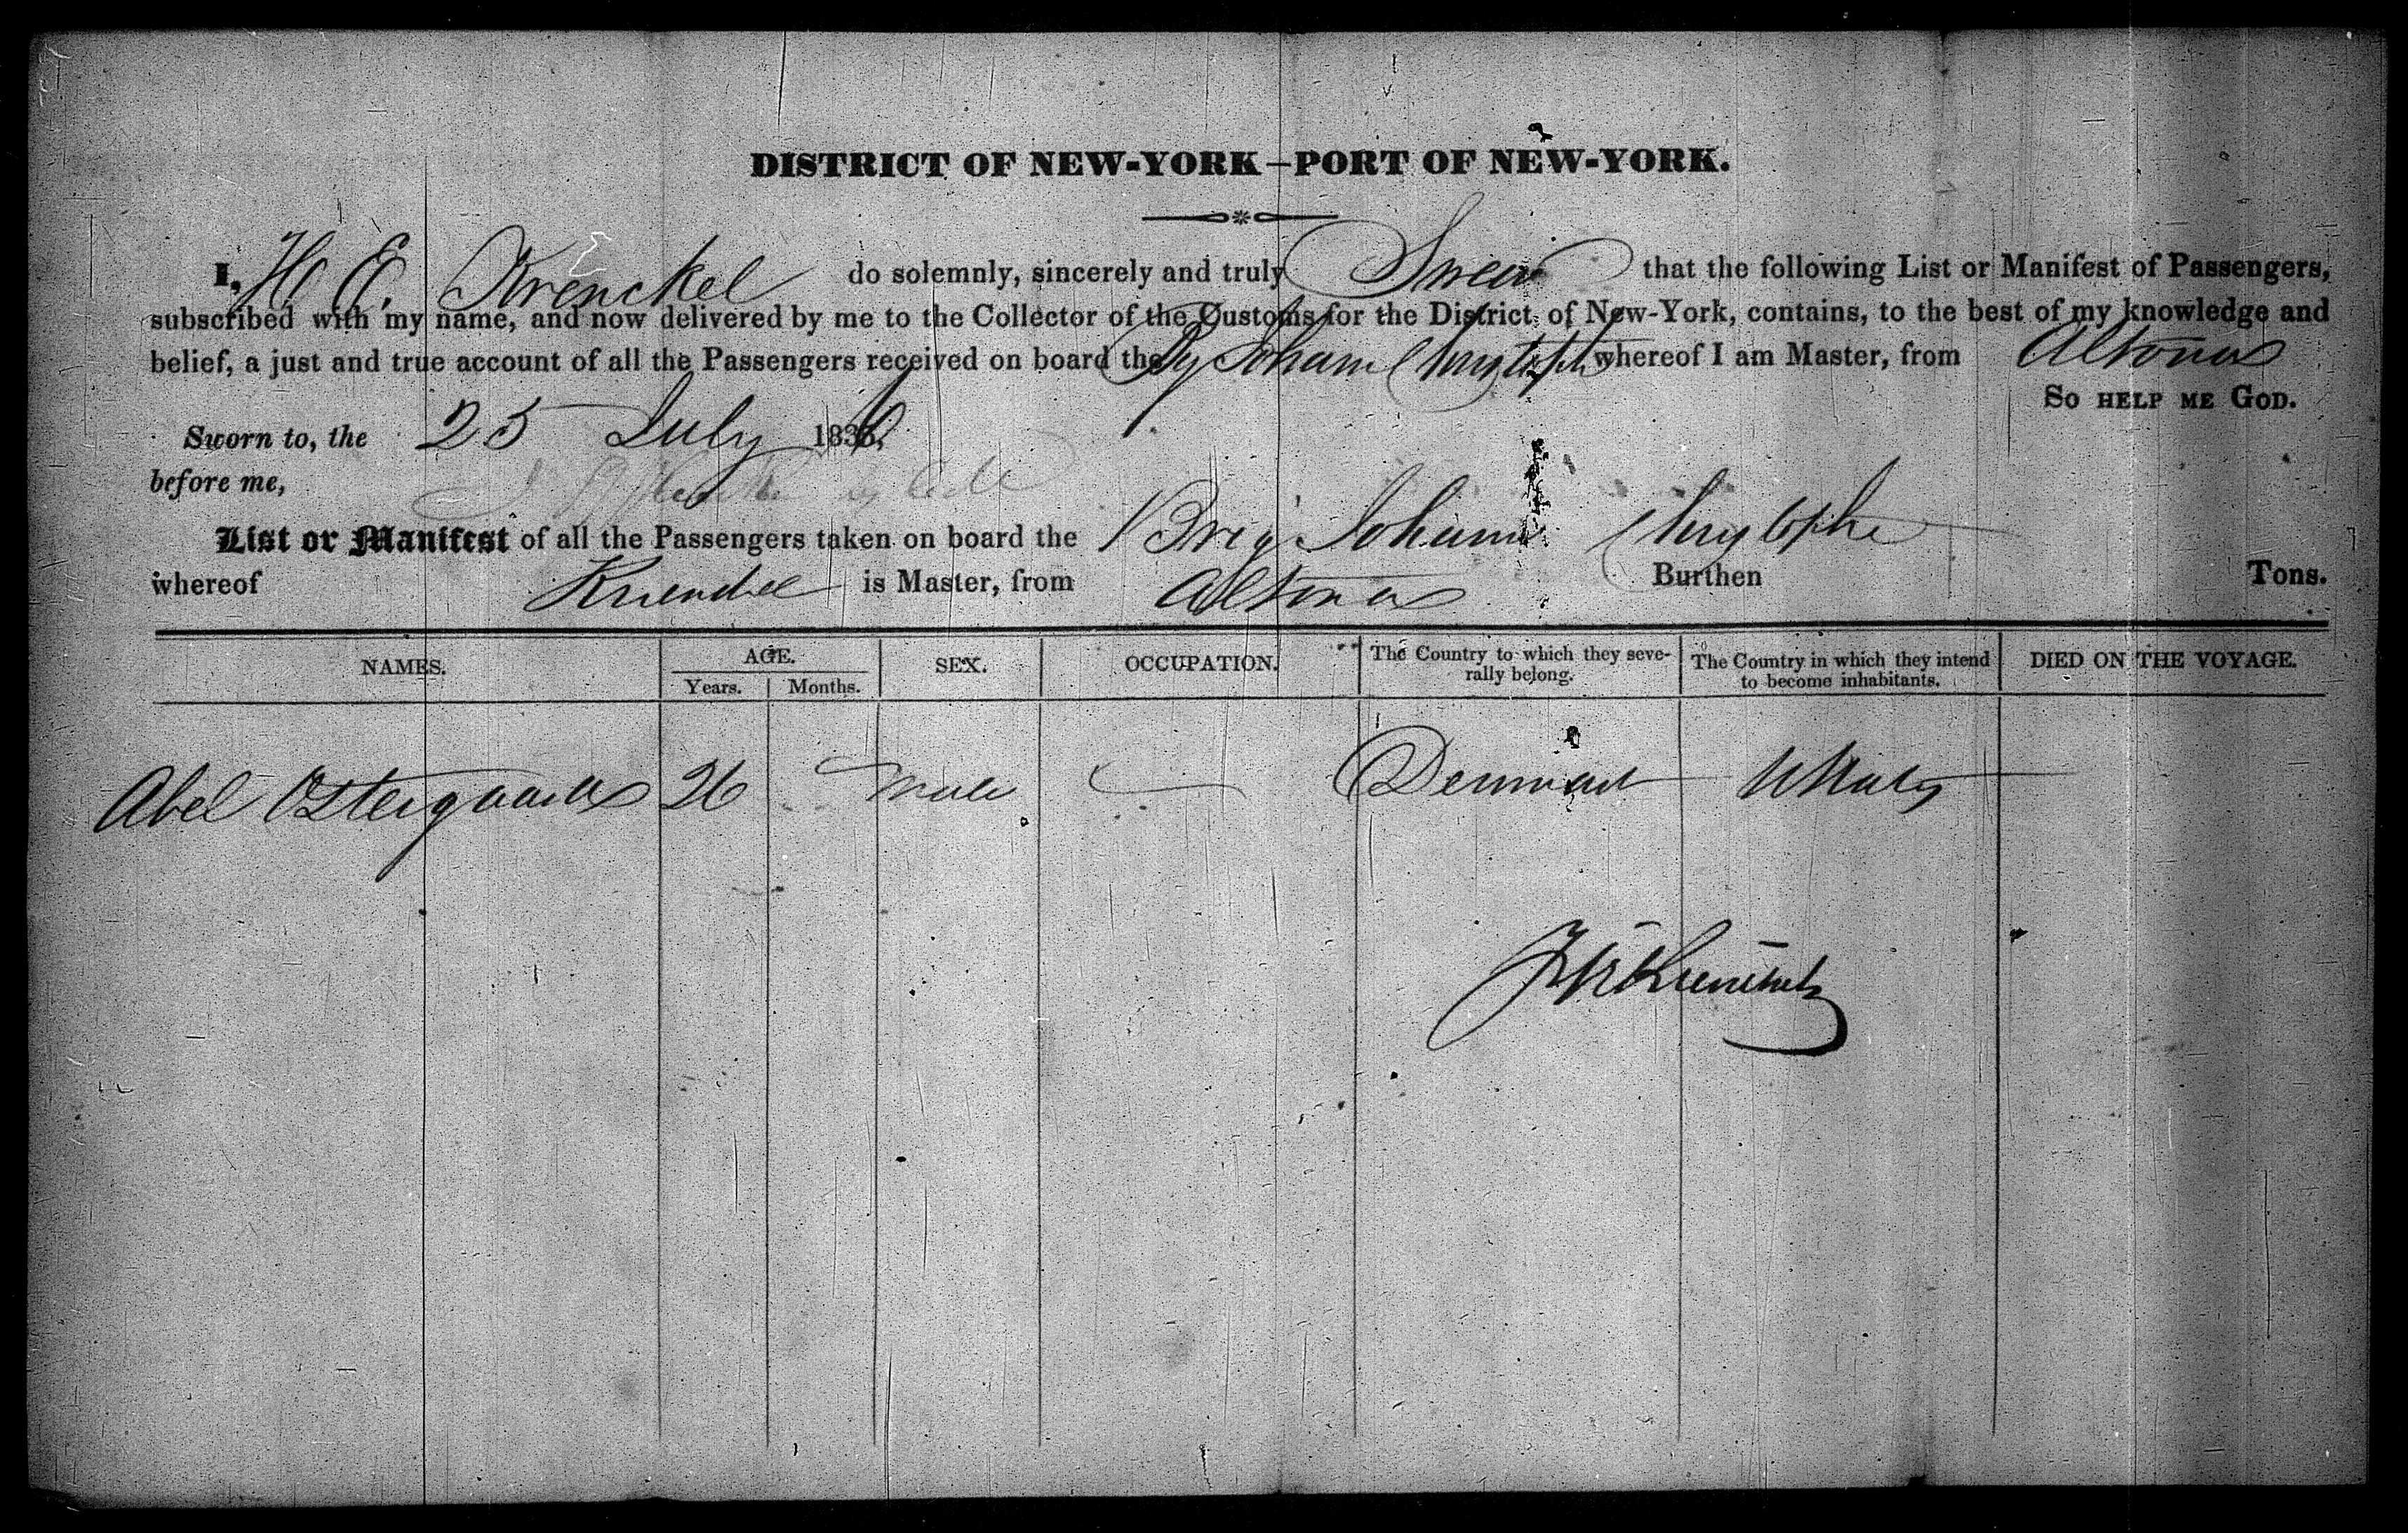 DISTRICT OF NEW-YORK—PORT OF NEW-YORK.
I, H E. Krenckel do solemnly, sincerely and truly Swear that the following List or Manifest of Passengers,
subscribed with my name, and now delivered by me to the Collector of the Customs for the District of New-York, contains, to the best of my knowledge and
belief, a just and true account of all the Passengers received on board the Johann whereof I am Master, from Altona
So help me God.
Sworn to, the 25 July 1836,
before me,
List or Manifest of all the Passengers taken on board the Brig Johann
whereof is Master, from Altona Burthen Tons.
NAMES. AGE. SEX. OCCUPATION. The Country to which they seve-
rally belong. The Country in which they intend
to become inhabitants. DIED ON THE VOYAGE.
Years. Months.
Abel Ostergaard 26 male Denmark